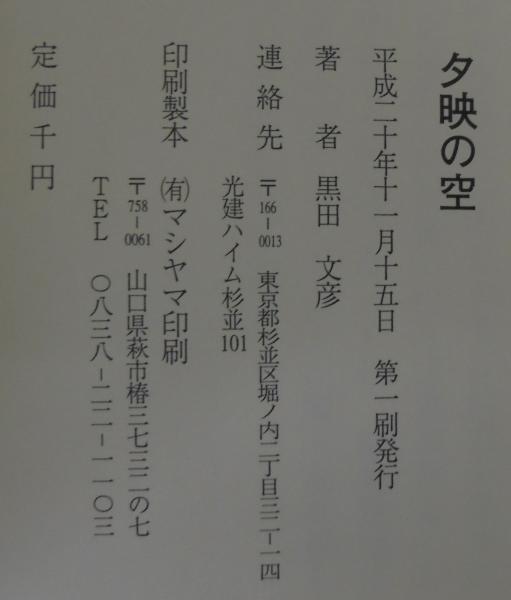 夕映の空
平成二十年十一月十五日 第一刷発行
著者 黒田 文彦
連絡先 〒166-0013 東京都杉並区堀ノ内二丁目三二-一四
光建ハイム杉並101
印刷製本 ㈲マシヤマ印刷
〒758-0061 山口県萩市椿三七三二の七
TEL 〇八三八-二二-一一〇三
定価千円